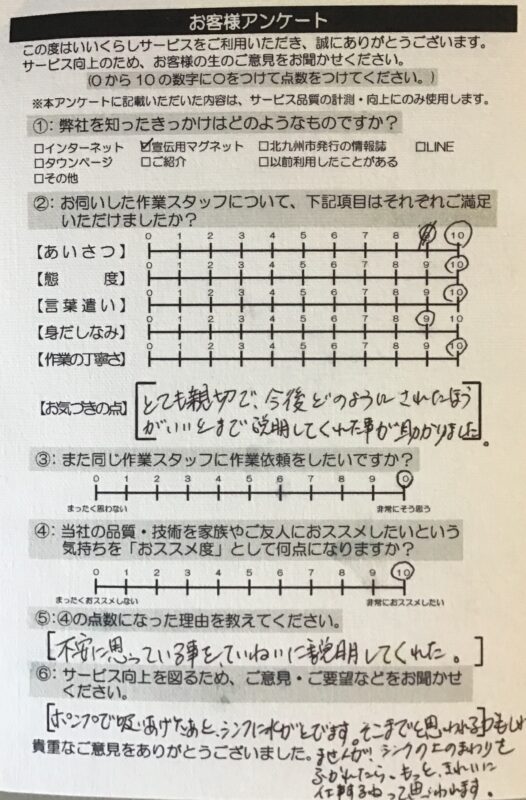 お客様アンケート
この度はいいくらしサービスをご利用いただき、誠にありがとうございます。
サービス向上のため、お客様の生のご意見をお聞かせください。
(0から10の数字に○をつけて点数をつけてください。)
※本アンケートに記載いただいた内容は、サービス品質の計測・向上にのみ使用します。
①：弊社を知ったきっかけはどのようなものですか？
□インターネット ☑宣伝用マグネット □北九州市発行の情報誌 □LINE
□タウンページ □ご紹介 □以前利用したことがある
□その他
②：お伺いした作業スタッフについて、下記項目はそれぞれご満足
いただけましたか？
0 1 2 3 4 5 6 7 8 9 10
【あいさつ】
0 1 2 3 4 5 6 7 8 9 10
【態　度】
0 1 2 3 4 5 6 7 8 9 10
【言葉遣い】
0 1 2 3 4 5 6 7 8 9 10
【身だしなみ】
0 1 2 3 4 5 6 7 8 9 10
【作業の丁寧さ】
【お気づきの点】
とても親切で、今後どのようにされたほう
がいいとまで説明してくれた事が助かりました。
③：また同じ作業スタッフに作業依頼をしたいですか？
0 1 2 3 4 5 6 7 8 9 10
まったく思わない 非常にそう思う
④：当社の品質・技術を家族やご友人におススメしたいという
気持ちを「おススメ度」として何点になりますか？
0 1 2 3 4 5 6 7 8 9 10
まったくおススメしない 非常におススメしたい
⑤：④の点数になった理由を教えてください。
不安に思っている事を、ていねいに説明してくれた。
⑥：サービス向上を図るため、ご意見・ご要望などをお聞かせ
ください。
ポンプで吸いあげたあと、シンクに水がとびます。そこまでと思われるかもしれ
貴重なご意見をありがとうございました。
ませんが、シンクの上のまわりを
ふかれたら、もっと、きれいに
仕事するねって思われます。